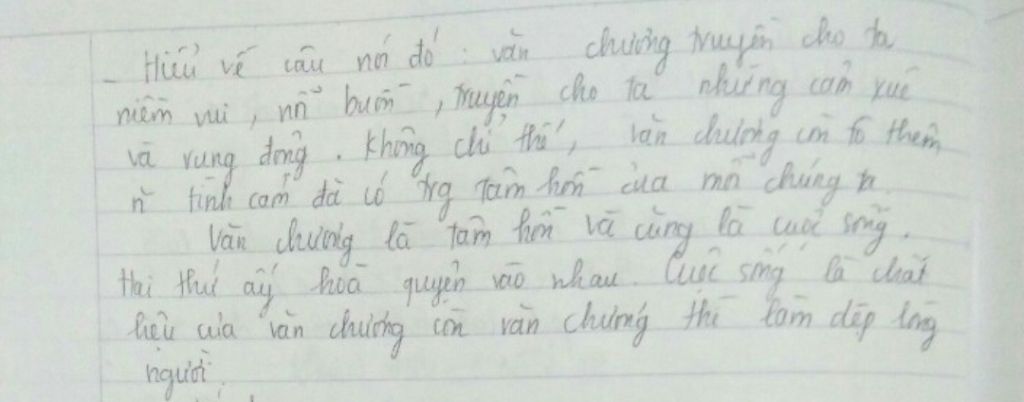 - Hiểu về câu nói đó : văn chương truyền cho ta
niềm vui, nỗi buồn, truyền cho ta những cảm xúc
và rung động. Không chỉ thế, văn chương còn tô thêm
n~ tình cảm đã có trg tâm hồn của mỗi chúng ta.
Văn chương là tâm hồn và cũng là cuộc sống.
Hai thứ ấy hoà quyện vào nhau. Cuộc sống là chất
liệu của văn chương còn văn chương thì làm đẹp lòng
người.